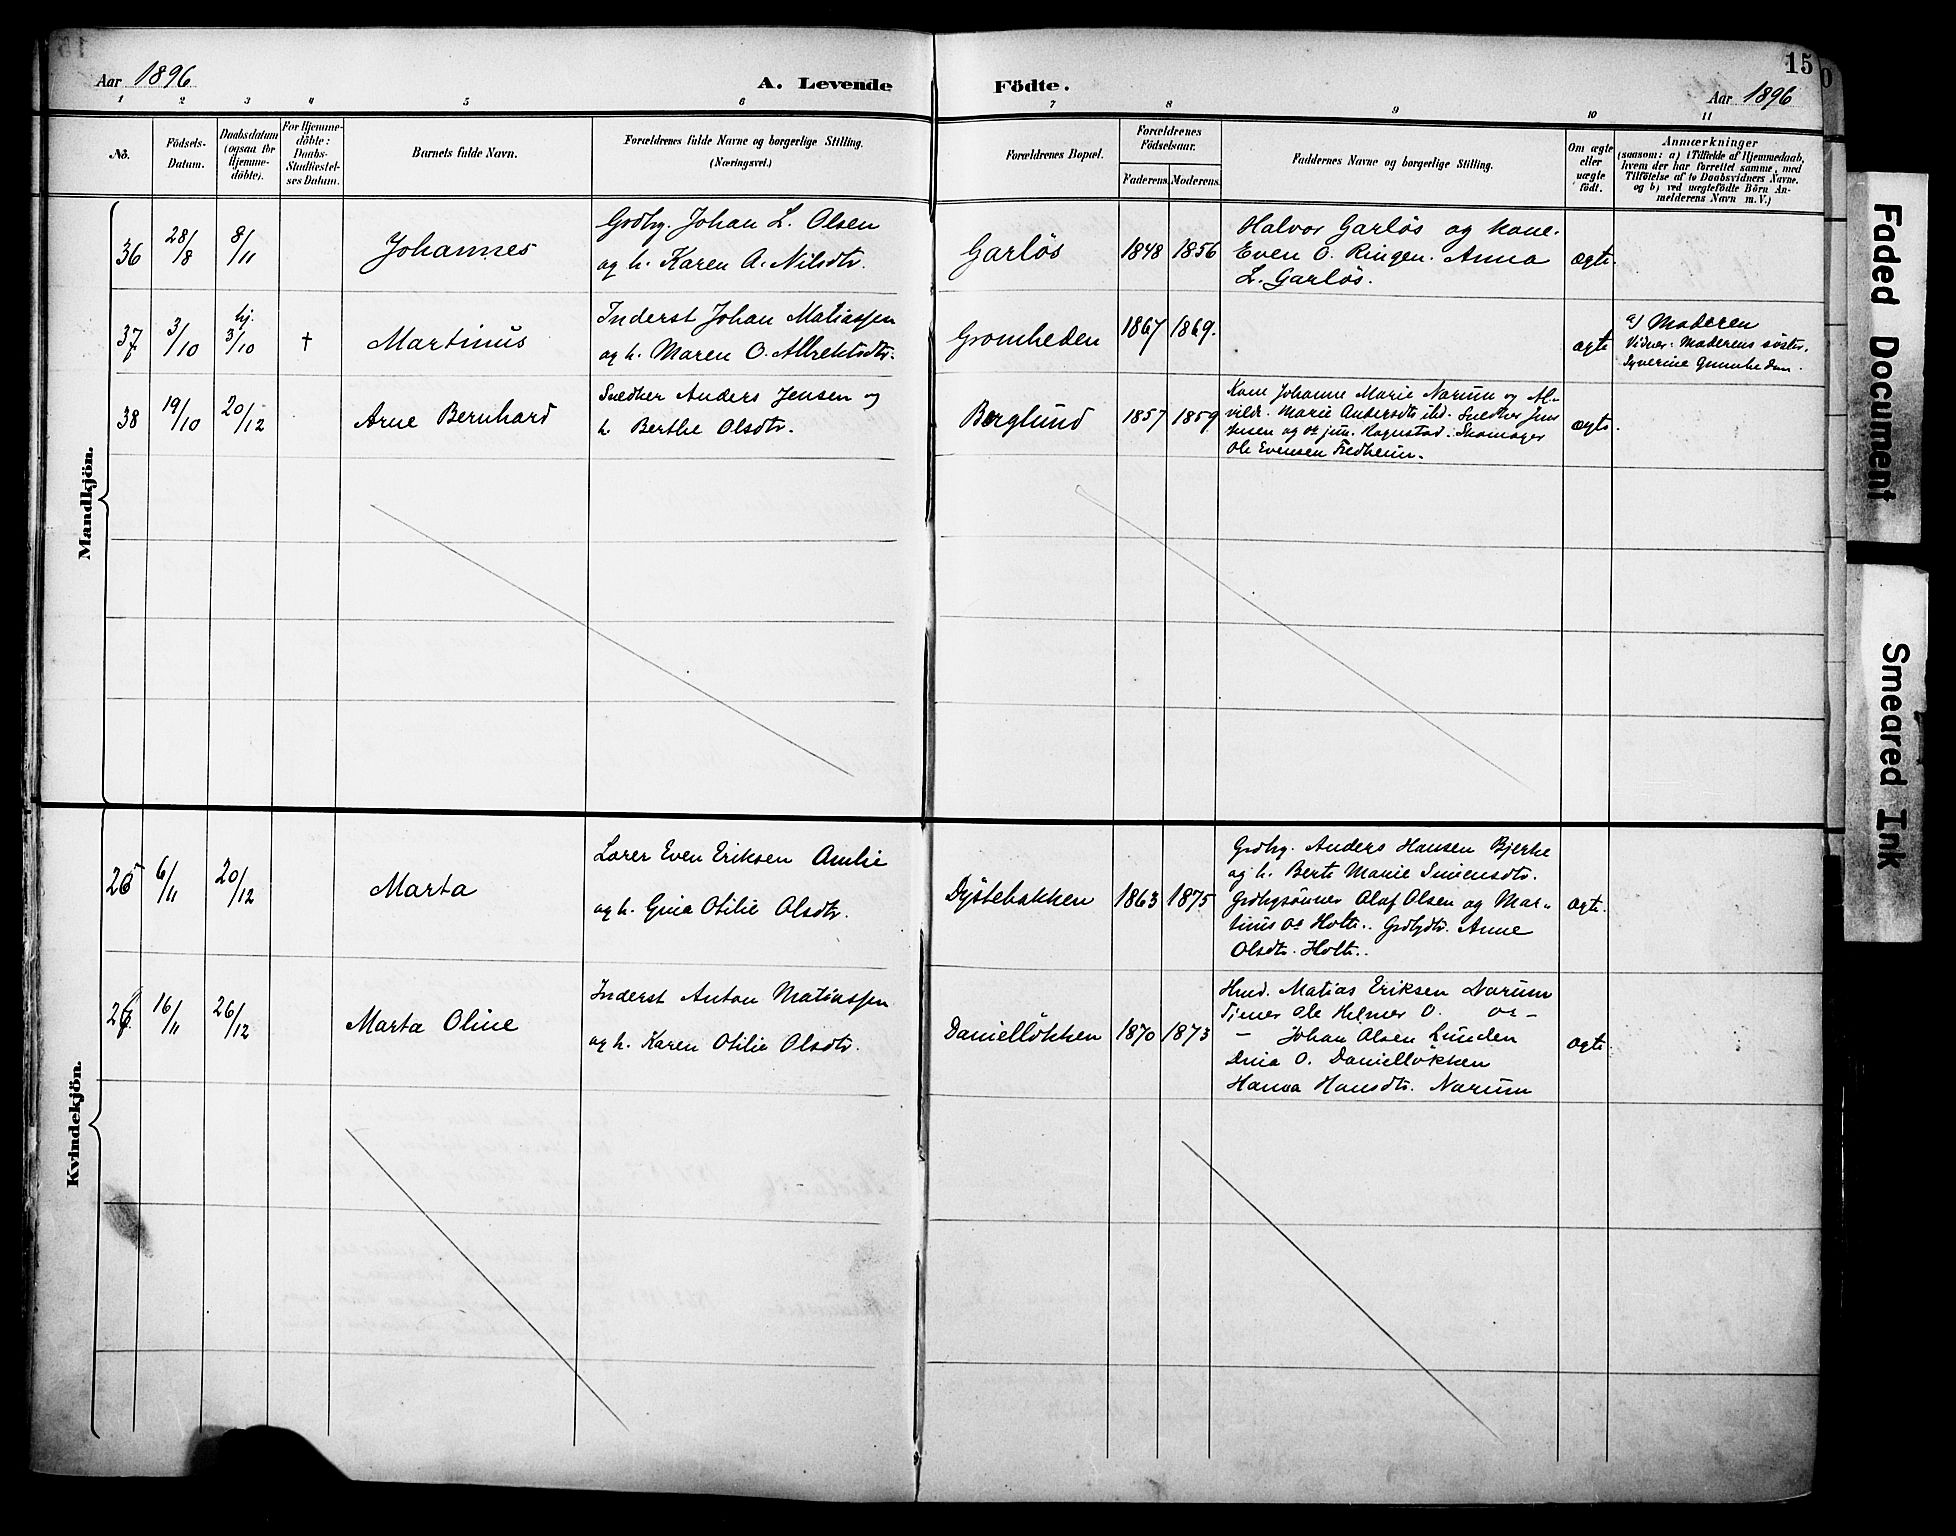 15
Aar 1896
A. Levende Födte.
Aar 1896
1 2 3 4 5 6 7 8 9 10 11
No.
Födsels-
Datum.
Daabsdatum
(ogsaa for
Hjemme-
döbte).
For Hjemme-
döbte:
Daabs-
Stadfæstel-
ses Datum.
Barnets fulde Navn.
Forældrenes fulde Navne og borgerlige Stilling.
(Næringsvei.)
Forældrenes Bopæl.
Forældrenes
Födselsaar.
Faderens. Moderens.
Faddernes Navne og borgerlige Stilling.
Om ægte
eller
uægte
födt.
Anmærkninger
(saasom: a) i Tilfælde af Hjemmedaab,
hvem der har forrettet samme, med
Tilföielse af to Daabsvidners Navne,
og b) ved uægtefödte Börn An-
melderens Navn m. V.)
Mandkjön.
36 28/8 8/11 Johannes
Grdbg. Johan L. Olsen
og h. Karen A. Nilsdtr.
Garløs 1848 1856
Halvor Garløs og kone.
Even O. Ringen. Anna
L. Garløs.
ægte.
37 3/10 hj. 3/10 † Martinus
Inderst Johan Matiassen
og h. Maren O. Albrektsdtr.
Gromheden 1867 1869.
ægte
a/ Moderen
Vidner: Moderens søster.
38 19/10 20/12 Arne Bernhard
Snedker Anders Jensen og
h. Berthe Olsdtr.
Berglund 1857 1859
Kone Johanne Marie Narum og Al-
vilde Marie Andersdtr ibd. Snedker Jens
Jensen og os jun. Skomager
Ole Evensen Fredheim.
ægte.
Kvindekjön.
25 6/11 20/12 Marta
Lærer Even Eriksen Amlie
og h. Gina Otilie Olsdtr.
Dystebakken 1863 1875
Grdbg. Anders Hansen Bjerke
og h. Berte Marie Simensdtr.
Grdbgsønner Olaf Olsen og Mar-
tinus os Holte.. Grdbgdtr. Anne
Olsdtr. Holte..
ægte.
26 16/11 26/12 Marta Oline
Inderst Anton Matiassen
og h. Karen Otilie Olsdtr.
Danielløkken 1870 1873
Hmd. Matias Eriksen Narum
Tjener Ole Helmer O. os –
– Johan Olsen Lunden
O. Danielløkken
Hanna Hansdtr. Narum
ægte.
Faded Document
Smeared Ink